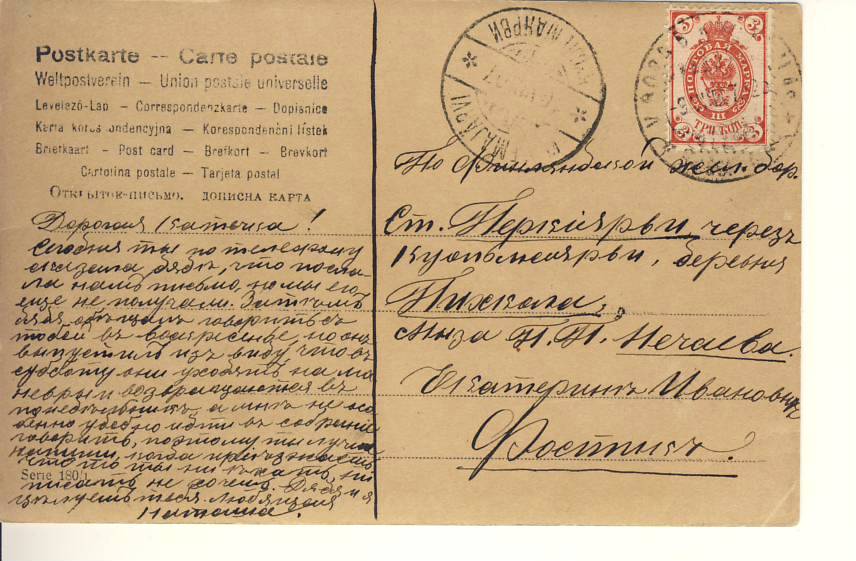 Postkarte — Carte postale
Weltpostverein — Union postale universelle
Levelezö-Lap — Correspondenzkarte — Dopisnice
Karta korespondencyjna — Korespondenční lístek
Briefkaart — Post card — Brefkort — Brevkort
Cartolina postale — Tarjeta postal
Открытое-письмо. дописна карта
Дорогая Катечка!
Сегодня ты по телефону
сказала дядѣ, что посла-
ла намъ письмо, но мы его
еще не получали. Затѣмъ
дядя обѣщалъ говорить съ
тобой въ воскресенье, но онъ
выпустилъ изъ виду что въ
субботу они уходятъ на ма
невры и возвращаются въ
понедѣльникъ, а мнѣ не осо
бенно удобно идти въ собраніе
говорить, поэтому ты лучше
напиши, когда пріѣзжаешь
писать не хочешь. Дядя и я
цѣлуемъ тебя. Любящая
Наташа.
Serie 180/1
3 3
ПОЧТОВАЯ МАРКА
III
ТРИ КОП.
3 3
По Финляндской жел. дор.
Ст. Перкіярви черезъ
Куолемоярви, деревня
Пихкала,
Мыза П. П. Нечаева.
Екатеринѣ Ивановнѣ
Фостикъ.